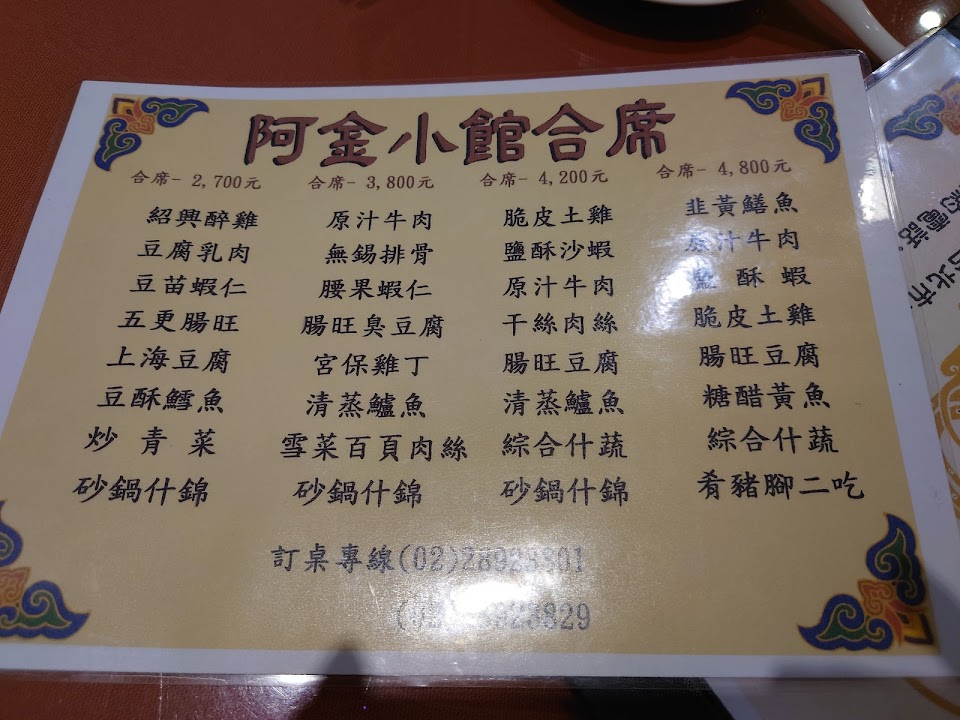 阿金小館合席
合席- 2,700元 合席- 3,800元 合席- 4,200元 合席- 4,800元
紹興醉雞 原汁牛肉 脆皮土雞 韭黃鱔魚
豆腐乳肉 無錫排骨 鹽酥沙蝦 原汁牛肉
豆苗蝦仁 腰果蝦仁 原汁牛肉 鹽酥蝦
五更腸旺 腸旺臭豆腐 干絲肉絲 脆皮土雞
上海豆腐 宮保雞丁 腸旺豆腐 腸旺豆腐
豆酥鱈魚 清蒸鱸魚 清蒸鱸魚 糖醋黃魚
炒青菜 雪菜百頁肉絲 綜合什蔬 綜合什蔬
砂鍋什錦 砂鍋什錦 砂鍋什錦 肴豬腳二吃
訂桌專線(02)28923801